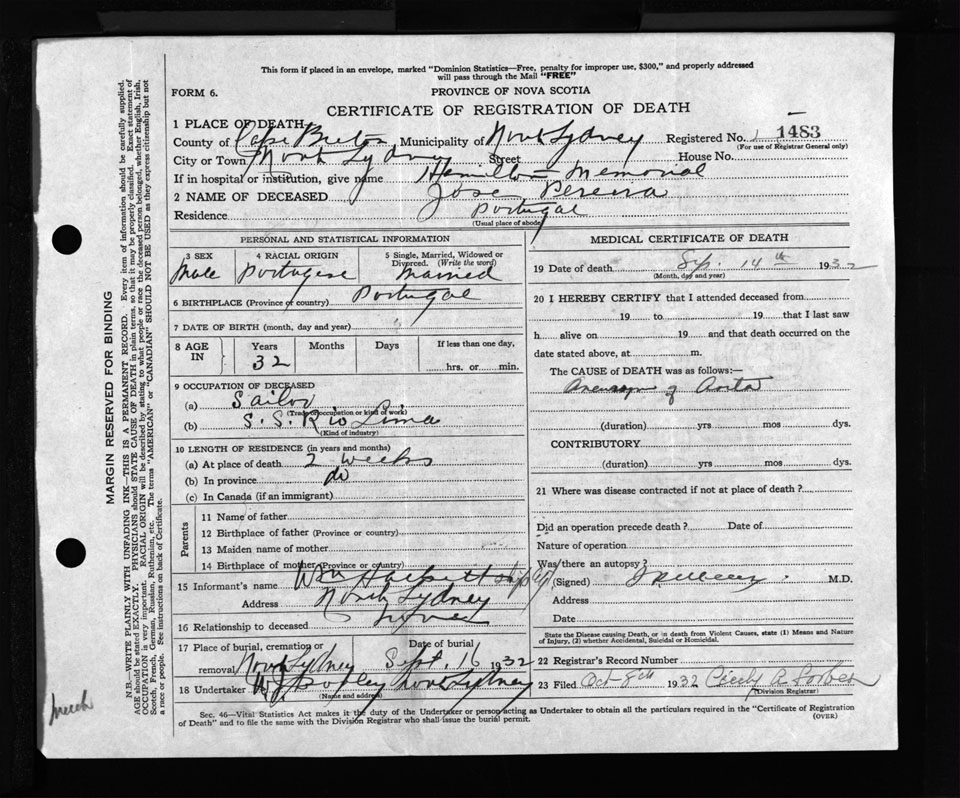 This form if placed in an envelope, marked "Dominion Statistics—Free, penalty for improper use, $300," and properly addressed
will pass through the Mail "FREE"
FORM 6.
PROVINCE OF NOVA SCOTIA
CERTIFICATE OF REGISTRATION OF DEATH
1 PLACE OF DEATH
County of Cape Breton Municipality of North Sydney Registered No. 1483
(For use of Registrar General only)
City or Town North Sydney Street House No.
If in hospital or institution, give name Hamilton Memorial
2 NAME OF DECEASED Jose Pereira
Residence Portugal
(Usual place of abode)
PERSONAL AND STATISTICAL INFORMATION
3 SEX 4 RACIAL ORIGIN 5 Single, Married, Widowed or
Divorced. (Write the word)
Male Portugese Married
6 BIRTHPLACE (Province or country) Portugal
7 DATE OF BIRTH (month, day and year)
8 AGE IN Years Months Days If less than one day,
32 hrs. or min.
9 OCCUPATION OF DECEASED
(a) Sailor
(Trade, occupation or kind of work)
(b) S. S. Rio Lima
(Kind of industry)
10 LENGTH OF RESIDENCE (in years and months)
(a) At place of death 2 weeks
(b) In province do
(c) In Canada (if an immigrant)
Parents
11 Name of father
12 Birthplace of father (Province or country)
13 Maiden name of mother
14 Birthplace of mother (Province or country)
15 Informant's name Wm Hackett
Address North Sydney
16 Relationship to deceased
17 Place of burial, cremation or Date of burial
removal North Sydney Sept. 16 1932
18 Undertaker North Sydney
(Name and address)
MEDICAL CERTIFICATE OF DEATH
19 Date of death Sep. 14th 1932
(Month, day and year)
20 I HEREBY CERTIFY that I attended deceased from
19 to 19 that I last saw
h alive on 19 and that death occurred on the
date stated above, at m.
The CAUSE of DEATH was as follows:—
Aneurysm of Aorta
(duration) yrs mos dys.
CONTRIBUTORY
(duration) yrs mos dys.
21 Where was disease contracted if not at place of death?
Did an operation precede death? Date of
Nature of operation
Was there an autopsy?
(Signed) M.D.
Address
Date
State the Disease causing Death, or in death from Violent Causes, state (1) Means and Nature
of Injury, (2) whether Accidental, Suicidal or Homicidal.
22 Registrar's Record Number
23 Filed Oct 8th 1932 Cecily A Forbes
(Division Registrar)
Sec. 46—Vital Statistics Act makes it the duty of the Undertaker or person acting as Undertaker to obtain all the particulars required in the "Certificate of Registration
of Death" and to file the same with the Division Registrar who shall issue the burial permit.
(OVER)
MARGIN RESERVED FOR BINDING
N.B.—WRITE PLAINLY WITH UNFADING INK—THIS IS A PERMANENT RECORD. Every item of information should be carefully supplied.
AGE should be stated EXACTLY. PHYSICIANS should STATE CAUSE OF DEATH in plain terms, so that it may be properly classified. Exact statement of
OCCUPATION is very important. RACIAL ORIGIN will be described by stating to what people or race the deceased person belonged, whether English, Irish,
Scotch, French, German, Russian, Ruthenian, etc. The terms "AMERICAN" or "CANADIAN" SHOULD NOT BE USED as they express citizenship but not
a race or people. See instructions on back of Certificate.